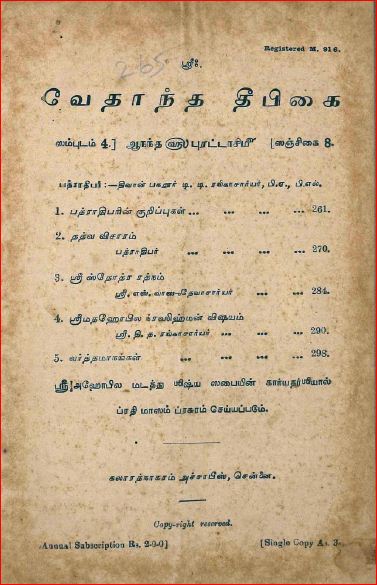 Registered M. 916.
265
ஸ்ரீஃ.
வேதாந்த தீபிகை
ஸம்புடம் 4.] ஆநந்த ௵ புரட்டாசி௴ [ஸஞ்சிகை 8.
பத்ராதிபர்:—திவான் பகதூர் டி. டி. ரங்காசார்யர், பி.ஏ., பி.எல்.
1. பத்ராதிபரின் குறிப்புகள் ... ... ... ... 261.
2. தத்வ விசாரம்
பத்ராதிபர் ... ... ... ... 270.
3. ஸ்ரீ ஸ்தோத்ர ரத்நம்
ஸ்ரீ. எஸ். வாஸுதேவாசார்யர் ... ... 284.
4. ஸ்ரீமதஹோபில ந்ருஸிஹ்மன் விஷயம்
ஸ்ரீ. தி. த. ரங்காசார்யர் ... ... ... 290.
5. வர்த்தமாநங்கள் ... ... ... ... 298.
ஸ்ரீ அஹோபில மடத்து ஶிஷ்ய ஸபையின் கார்யதர்ஶியால்
ப்ரதி மாஸம் ப்ரசுரம் செய்யப்படும்.
கலாரத்நாகரம் அச்சாபீஸ், சென்னை.
Copy-right reserved.
Annual Subscription Rs. 2-0-0] [Single Copy As. 3-